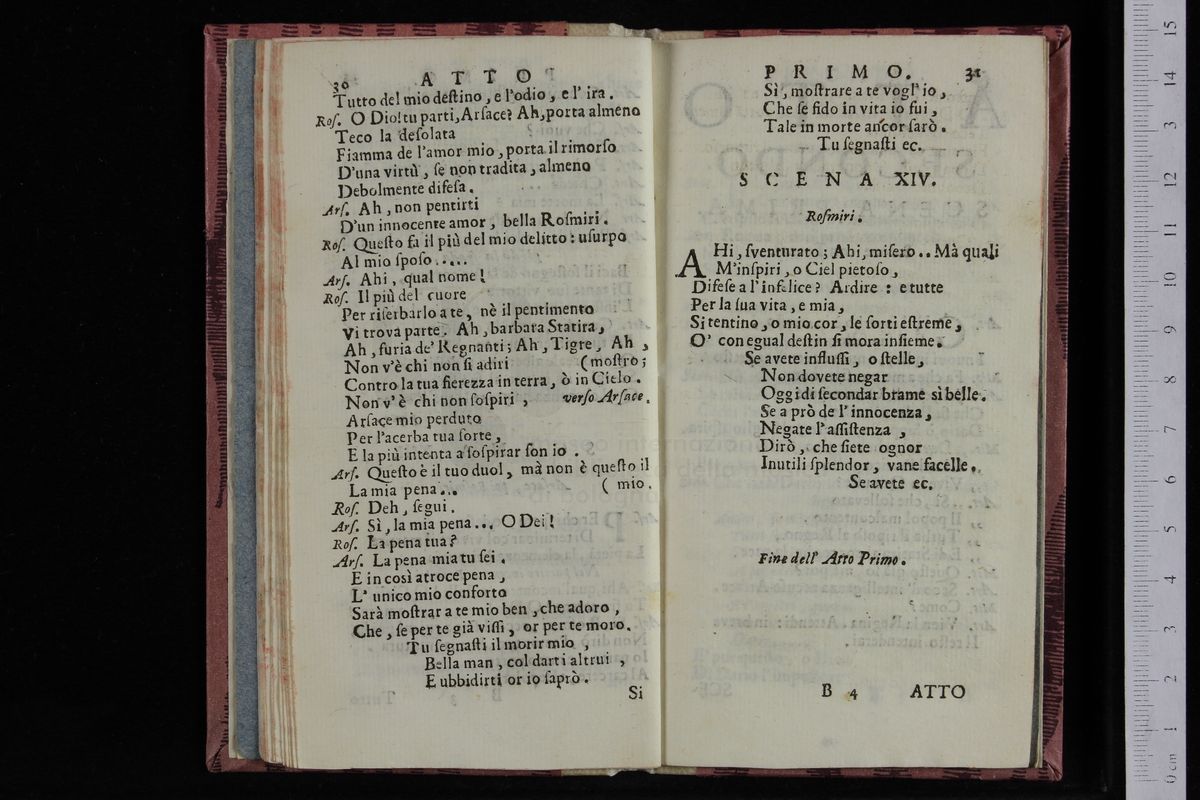 30 ATTO
Tutto del mio deſtino, e l'odio, e l' ira.
Roſ. O Dio! tu parti, Arſace? Ah, porta almeno
Teco la deſolata
Fiamma de l'amor mio, porta il rimorſo
D'una virtù, ſe non tradita, almeno
Debolmente difeſa.
Arſ. Ah, non pentirti
D'un innocente amor, bella Roſmiri.
Roſ. Queſto fa il più del mio delitto: uſurpo
Al mio ſpoſo.....
Arſ. Ahi, qual nome!
Roſ. Il più del cuore
Per riſerbarlo a te, nè il pentimento
Vi trova parte. Ah, barbara Statira,
Ah, furia de' Regnanti; Ah, Tigre, Ah,
Non v'è chi non ſi adiri (moſtro;
Contro la tua fierezza in terra, ò in Cielo.
Non v'è chi non ſoſpiri, verſo Arſace.
Arſace mio perduto
Per l'acerba tua ſorte,
E la più intenta a ſoſpirar ſon io.
Arſ. Queſto è il tuo duol, mà non è queſto il
La mia pena... ( mio.
Roſ. Deh, ſegui.
Arſ. Sì, la mia pena... O Dei!
Roſ. La pena tua?
Arſ. La pena mia tu ſei.
E in così atroce pena,
L' unico mio conforto
Sarà moſtrar a te mio ben, che adoro,
Che, ſe per te già viſſi, or per te moro.
Tu ſegnaſti il morir mio,
Bella man, col darti altrui,
E ubbidirti or io ſaprò.
Si
PRIMO. 31
Sì, moſtrare a te vogl' io,
Che ſe fido in vita io fui,
Tale in morte ancor ſarò.
Tu ſegnaſti ec.
SCENA XIV.
Roſmiri.
AHi, ſventurato; Ahi, miſero.. Mà quali
M'inſpiri, o Ciel pietoſo,
Difeſe a l' infelice? Ardire: e tutte
Per la ſua vita, e mia,
Si tentino, o mio cor, le ſorti eſtreme,
O' con egual deſtin ſi mora inſieme.
Se avete influſſi, o ſtelle,
Non dovete negar
Oggi di ſecondar brame sì belle.
Se a prò de l' innocenza,
Negate l' aſſiſtenza,
Dirò, che ſiete ognor
Inutili ſplendor, vane facelle.
Se avete ec.
Fine dell' Atto Primo.
B 4 ATTO